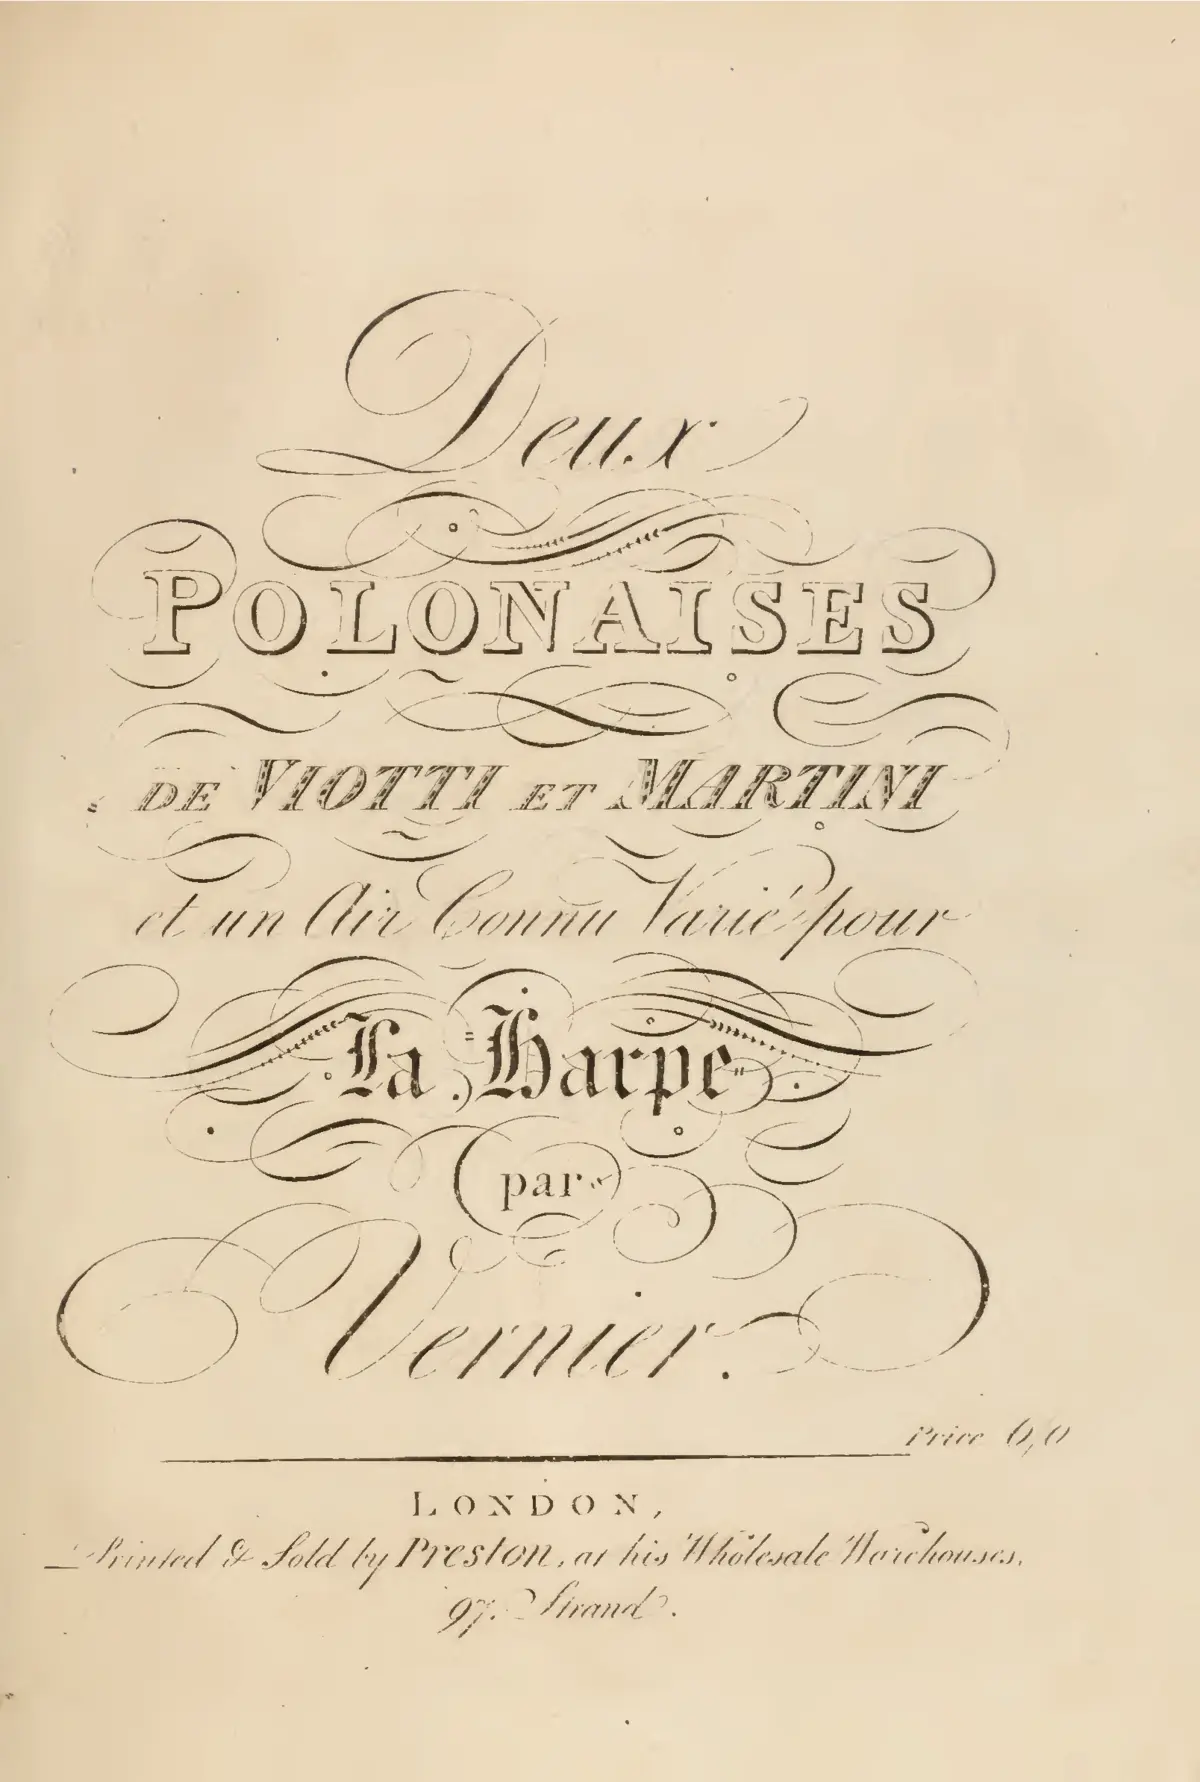 Deux
POLONAISES
DE VIOTTI ET MARTINI
et un Air Connu Varié pour
La Harpe
par
Vernier.
Price 6,0
LONDON,
Printed & Sold by Preston, at his Wholesale Warehouses,
97. Strand.